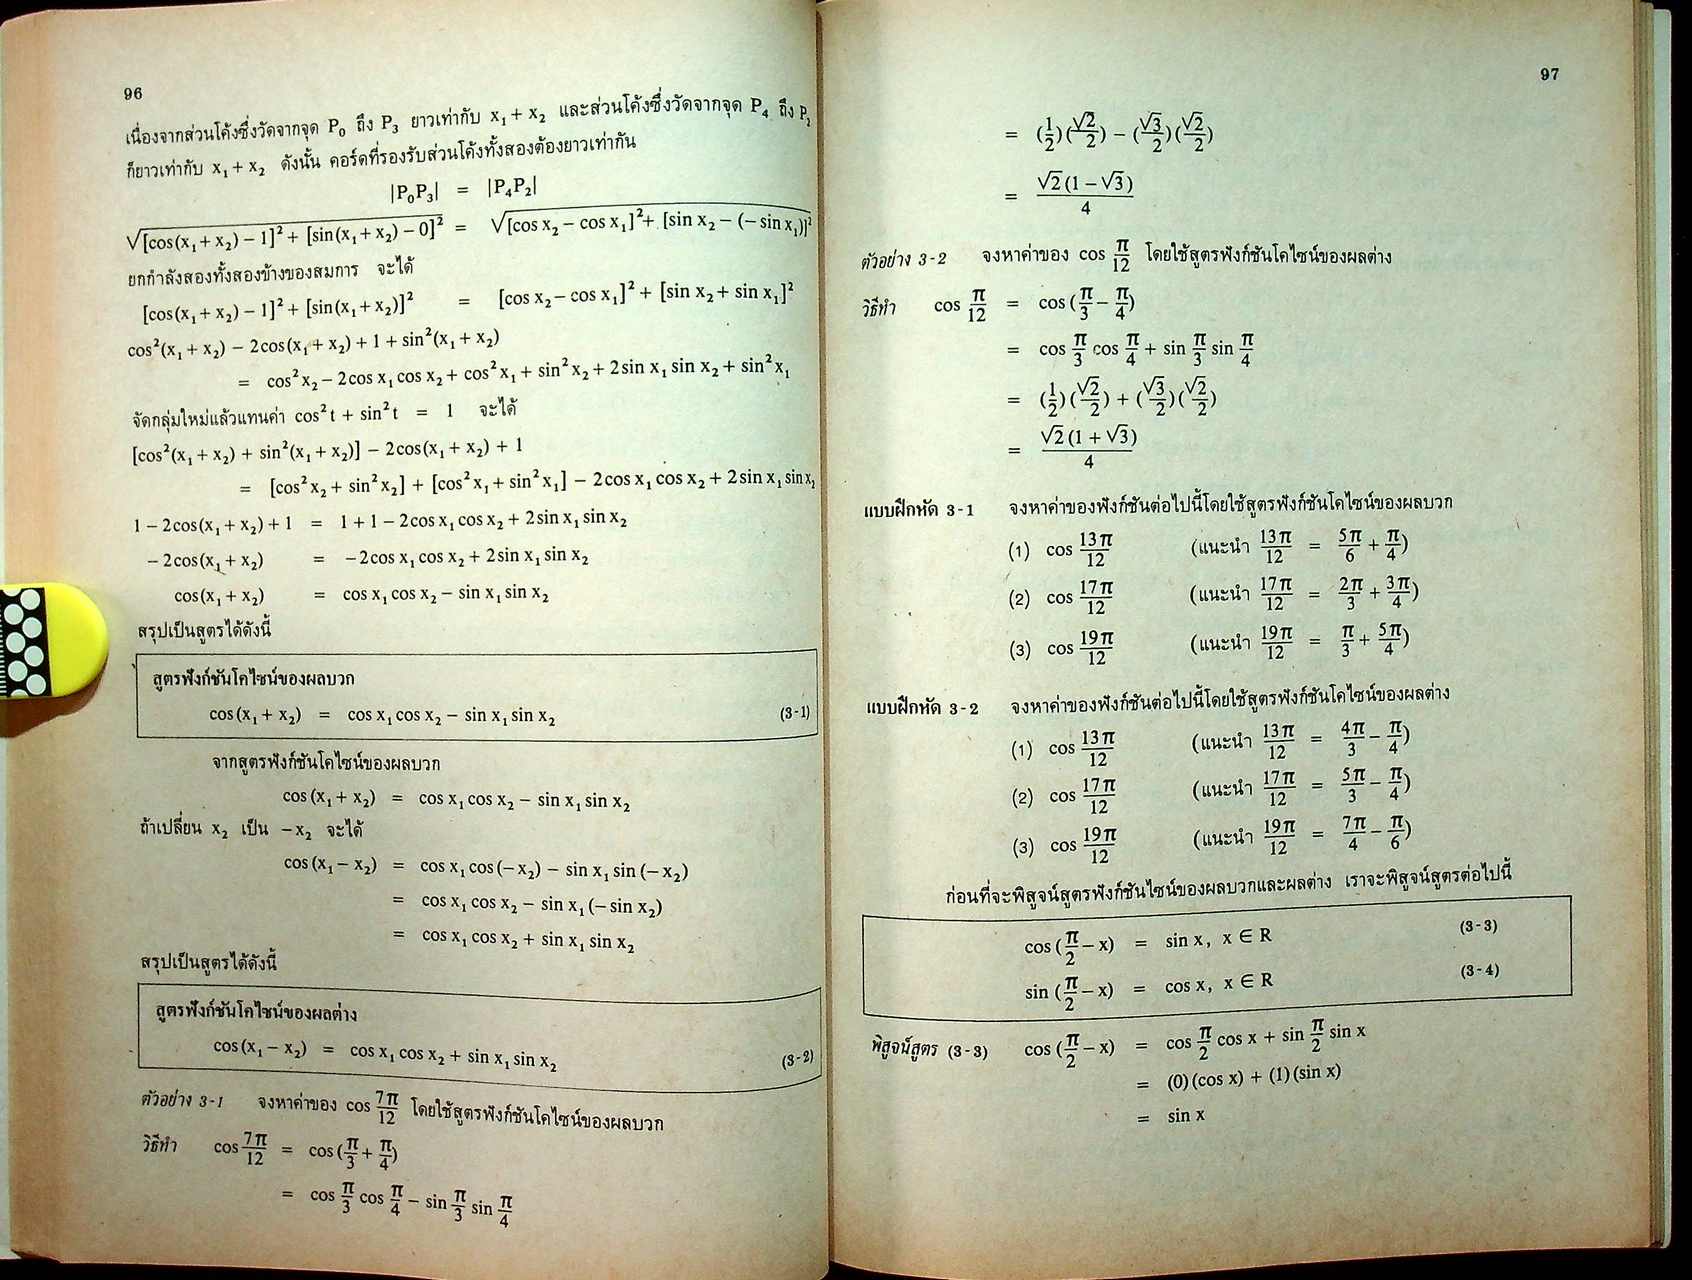 96
เนื่องจากส่วนโค้งซึ่งวัดจากจุด P₀ ถึง P₃ ยาวเท่ากับ x₁ + x₂ และส่วนโค้งซึ่งวัดจากจุด P₄ ถึง P₂
ก็ยาวเท่ากับ x₁ + x₂ ดังนั้น คอร์ดที่รองรับส่วนโค้งทั้งสองต้องยาวเท่ากัน
|P₀P₃| = |P₄P₂|
√[cos(x₁ + x₂) − 1]² + [sin(x₁ + x₂) − 0]² = √[cos x₂ − cos x₁]² + [sin x₂ − (−sin x₁)]²
ยกกำลังสองทั้งสองข้างของสมการ จะได้
[cos(x₁ + x₂) − 1]² + [sin(x₁ + x₂)]² = [cos x₂ − cos x₁]² + [sin x₂ + sin x₁]²
cos²(x₁ + x₂) − 2cos(x₁ + x₂) + 1 + sin²(x₁ + x₂)
= cos²x₂ − 2cos x₁ cos x₂ + cos²x₁ + sin²x₂ + 2sin x₁ sin x₂ + sin²x₁
จัดกลุ่มใหม่แล้วแทนค่า cos²t + sin²t = 1 จะได้
[cos²(x₁ + x₂) + sin²(x₁ + x₂)] − 2cos(x₁ + x₂) + 1
= [cos²x₂ + sin²x₂] + [cos²x₁ + sin²x₁] − 2cos x₁ cos x₂ + 2sin x₁ sin x₂
1 − 2cos(x₁ + x₂) + 1 = 1 + 1 − 2cos x₁ cos x₂ + 2sin x₁ sin x₂
−2cos(x₁ + x₂) = −2cos x₁ cos x₂ + 2sin x₁ sin x₂
cos(x₁ + x₂) = cos x₁ cos x₂ − sin x₁ sin x₂
สรุปเป็นสูตรได้ดังนี้
สูตรฟังก์ชันโคไซน์ของผลบวก
cos(x₁ + x₂) = cos x₁ cos x₂ − sin x₁ sin x₂ (3-1)
จากสูตรฟังก์ชันโคไซน์ของผลบวก
cos(x₁ + x₂) = cos x₁ cos x₂ − sin x₁ sin x₂
ถ้าเปลี่ยน x₂ เป็น −x₂ จะได้
cos(x₁ − x₂) = cos x₁ cos(−x₂) − sin x₁ sin(−x₂)
= cos x₁ cos x₂ − sin x₁(−sin x₂)
= cos x₁ cos x₂ + sin x₁ sin x₂
สรุปเป็นสูตรได้ดังนี้
สูตรฟังก์ชันโคไซน์ของผลต่าง
cos(x₁ − x₂) = cos x₁ cos x₂ + sin x₁ sin x₂ (3-2)
ตัวอย่าง 3-1 จงหาค่าของ cos 7π/12 โดยใช้สูตรฟังก์ชันโคไซน์ของผลบวก
วิธีทำ cos 7π/12 = cos(π/3 + π/4)
= cos π/3 cos π/4 − sin π/3 sin π/4
97
= (1/2)(√2/2) − (√3/2)(√2/2)
= √2(1 − √3)/4
ตัวอย่าง 3-2 จงหาค่าของ cos π/12 โดยใช้สูตรฟังก์ชันโคไซน์ของผลต่าง
วิธีทำ cos π/12 = cos(π/3 − π/4)
= cos π/3 cos π/4 + sin π/3 sin π/4
= (1/2)(√2/2) + (√3/2)(√2/2)
= √2(1 + √3)/4
แบบฝึกหัด 3-1 จงหาค่าของฟังก์ชันต่อไปนี้โดยใช้สูตรฟังก์ชันโคไซน์ของผลบวก
(1) cos 13π/12 (แนะนำ 13π/12 = 5π/6 + π/4)
(2) cos 17π/12 (แนะนำ 17π/12 = 2π/3 + 3π/4)
(3) cos 19π/12 (แนะนำ 19π/12 = π/3 + 5π/4)
แบบฝึกหัด 3-2 จงหาค่าของฟังก์ชันต่อไปนี้โดยใช้สูตรฟังก์ชันโคไซน์ของผลต่าง
(1) cos 13π/12 (แนะนำ 13π/12 = 4π/3 − π/4)
(2) cos 17π/12 (แนะนำ 17π/12 = 5π/3 − π/4)
(3) cos 19π/12 (แนะนำ 19π/12 = 7π/4 − π/6)
ก่อนที่จะพิสูจน์สูตรฟังก์ชันไซน์ของผลบวกและผลต่าง เราจะพิสูจน์สูตรต่อไปนี้
cos(π/2 − x) = sin x, x ∈ R (3-3)
sin(π/2 − x) = cos x, x ∈ R (3-4)
พิสูจน์สูตร (3-3) cos(π/2 − x) = cos π/2 cos x + sin π/2 sin x
= (0)(cos x) + (1)(sin x)
= sin x